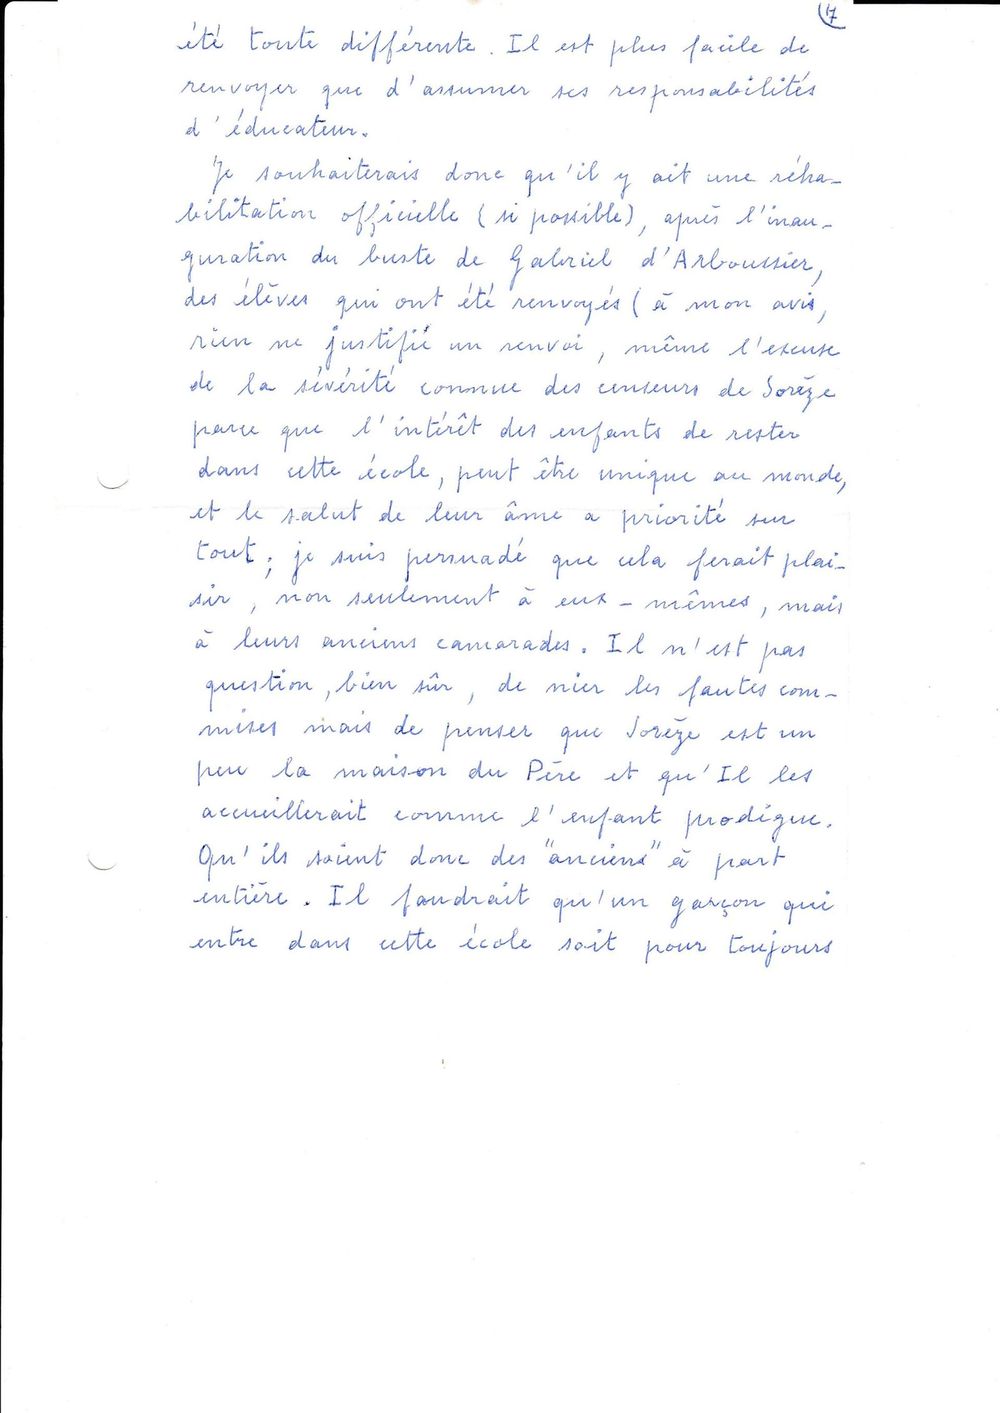 17
été toute différente. Il est plus facile de
renvoyer que d'assumer ses responsabilités
d'éducateur.
Je souhaiterais donc qu'il y ait une réha-
bilitation officielle (si possible), après l'inau-
guration du buste de Gabriel d'Arboussier,
des élèves qui ont été renvoyés (à mon avis,
rien ne justifié un renvoi, même l'excuse
de la sévérité connue des censeurs de Sorèze
parce que l'intérêt des enfants de rester
dans cette école, peut être unique au monde,
et le salut de leur âme a priorité sur
tout; je suis persuadé que cela ferait plai-
sir, non seulement à eux-mêmes, mais
à leurs anciens camarades. Il n'est pas
question, bien sûr, de nier les fautes com-
mises mais de penser que Sorèze est un
peu la maison du Père et qu'Il les
accueillerait comme l'enfant prodigue.
Qu'ils soient donc des "anciens" à part
entière. Il faudrait qu'un garçon qui
entre dans cette école soit pour toujours